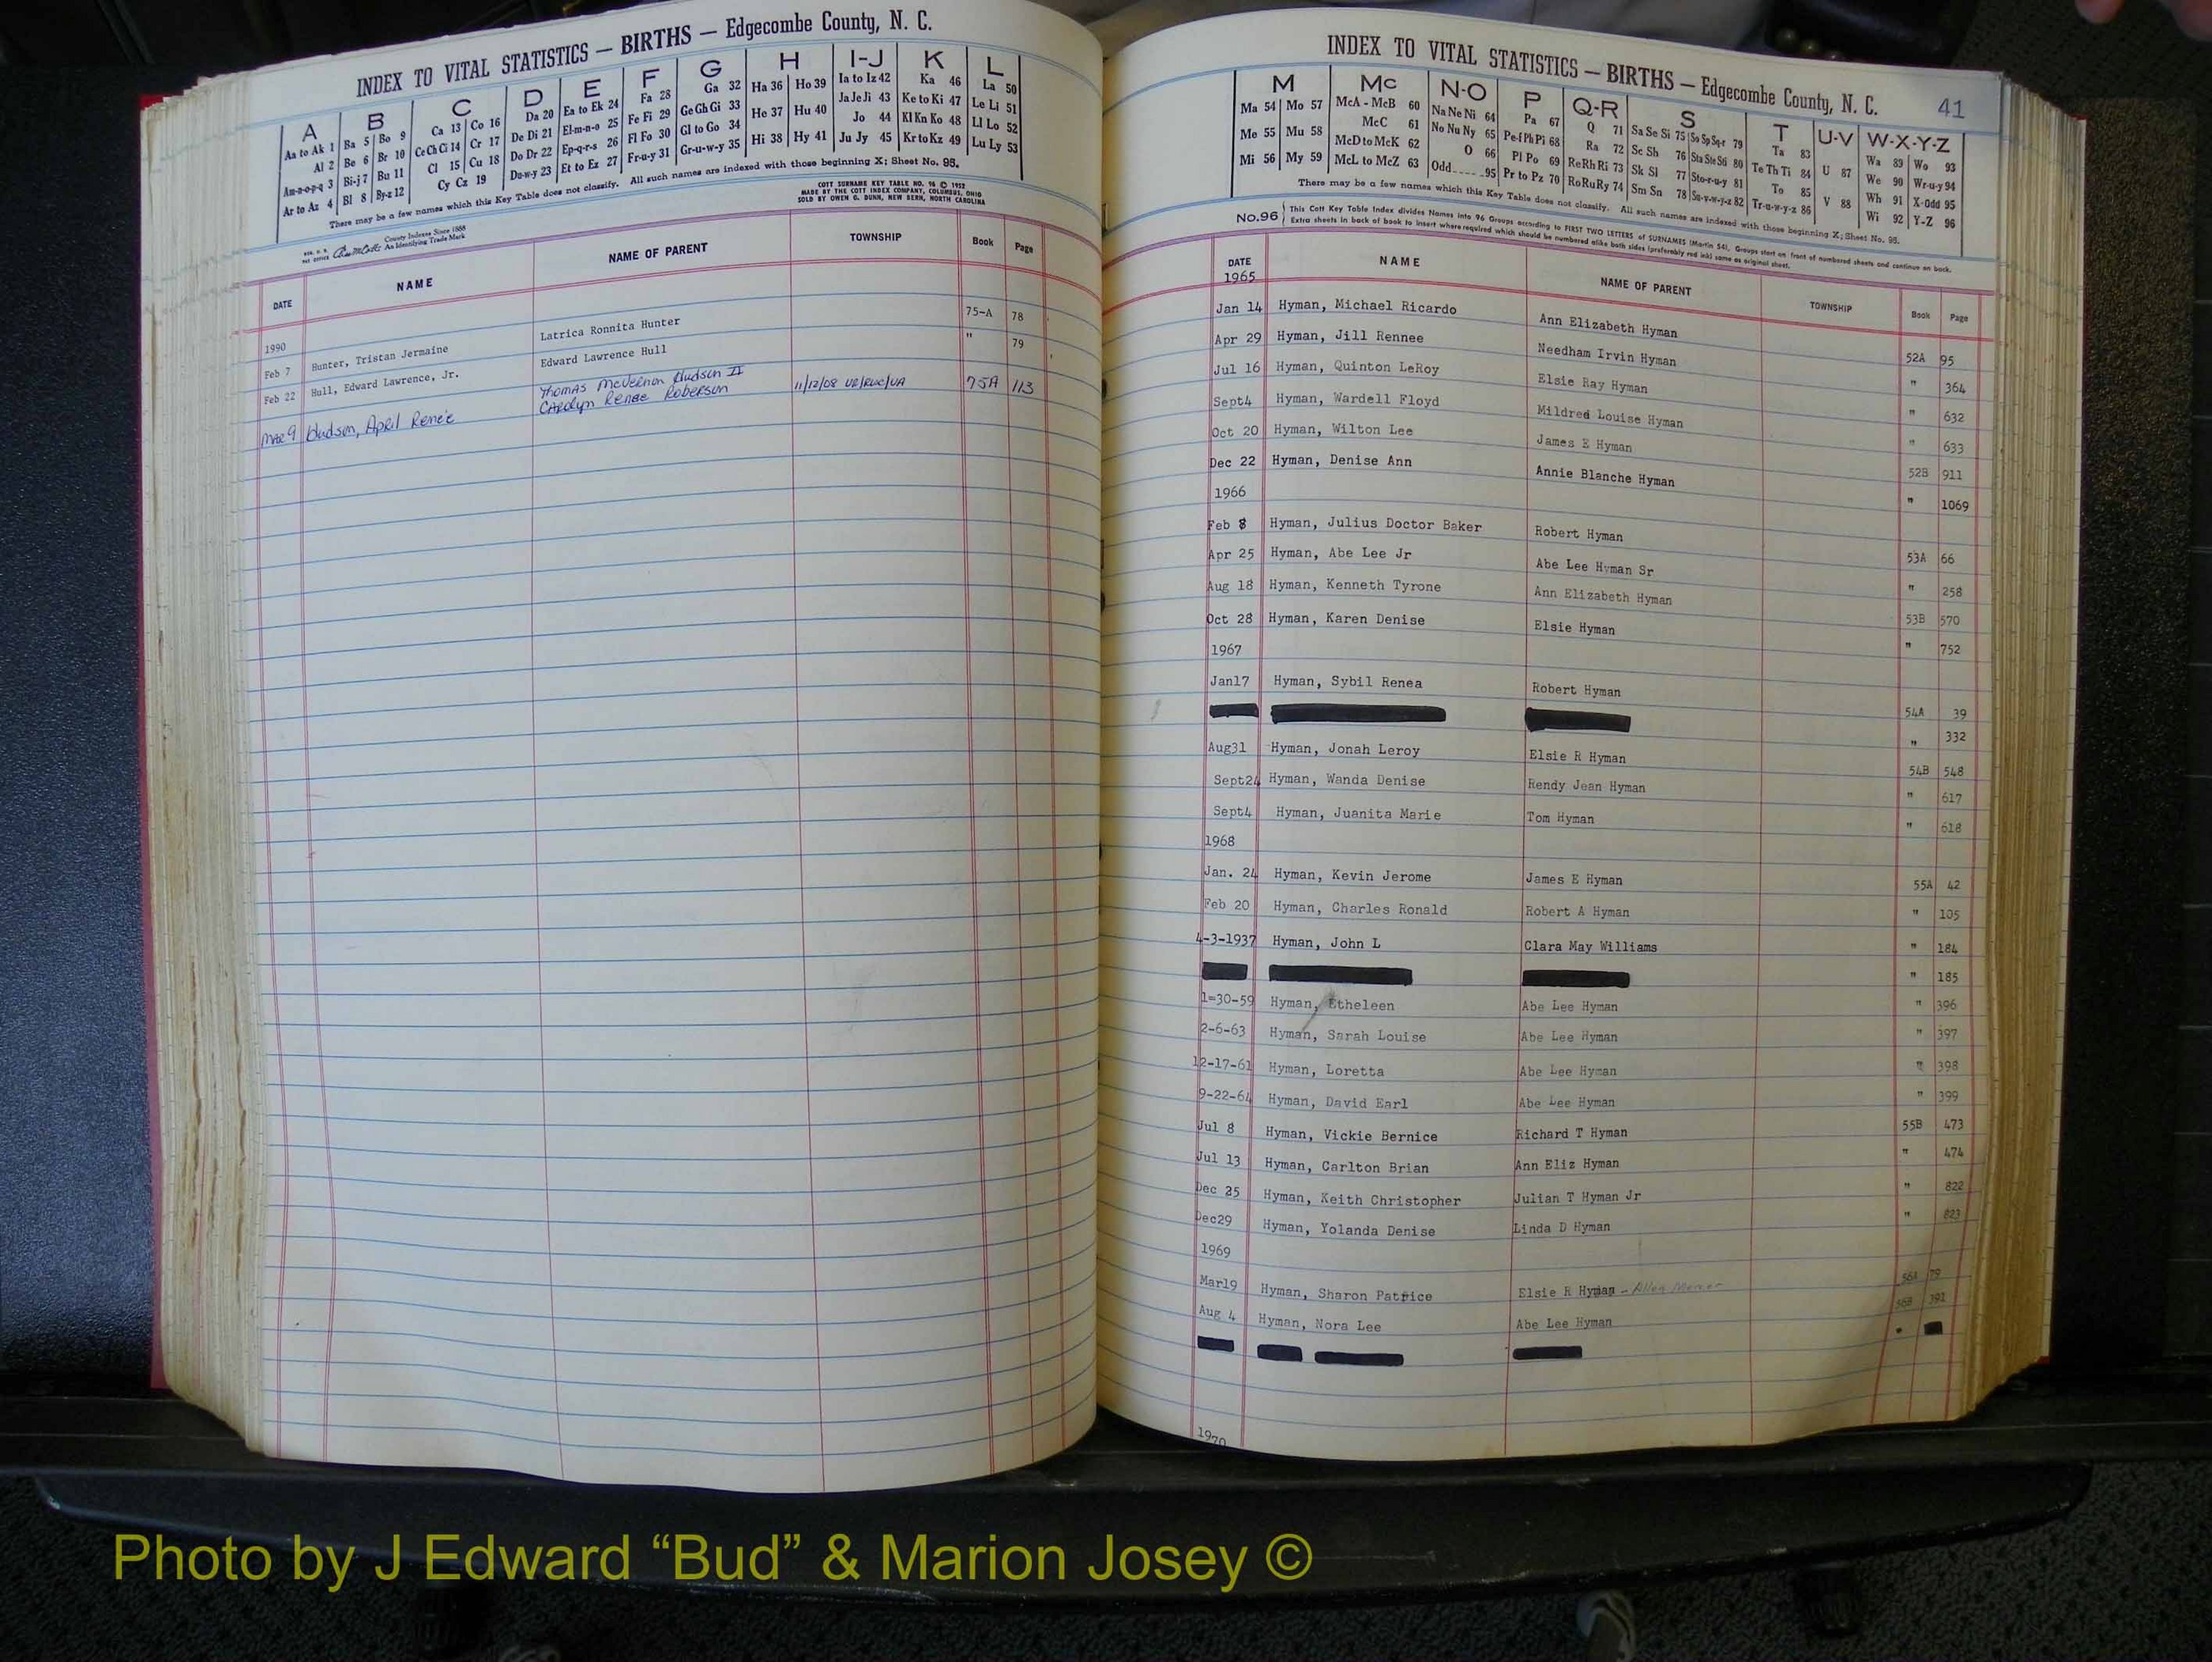 INDEX TO VITAL STATISTICS — BIRTHS — Edgecombe County, N. C.
A B C D E F G H I-J K L
Aa to Ak 1 Ba 5 Bo 9 Ca 13 Co 16 Da 20 Ea to Ek 24 Fa 28 Ga 32 Ha 36 Ho 39 Ia to Iz 42 Ka 46 La 50
Al 2 Be 6 Br 10 Ce Ch Ci 14 Cr 17 De Di 21 El-m-n-o 25 Fe Fi 29 Ge Gh Gi 33 He 37 Hu 40 Ja Je Ji 43 Ke to Ki 47 Le Li 51
Am-n-o-p-q 3 Bi-j 7 Bu 11 Cl 15 Cu 18 Do Dr 22 Ep-q-r-s 26 Fl Fo 30 Gl to Go 34 Hi 38 Hy 41 Jo 44 Kl Kn Ko 48 Ll Lo 52
Ar to Az 4 Bl 8 By-z 12 Cy Cz 19 Du-w-y 23 Et to Ez 27 Fr-u-y 31 Gr-u-w-y 35 Ju Jy 45 Kr to Kz 49 Lu Ly 53
There may be a few names which this Key Table does not classify. All such names are indexed with those beginning X; Sheet No. 95.
COTT SURNAME KEY TABLE NO. 96 © 1952
MADE BY THE COTT INDEX COMPANY, COLUMBUS, OHIO
SOLD BY OWEN G. DUNN, NEW BERN, NORTH CAROLINA
County Indexes Since 1888
An Identifying Trade Mark
DATE NAME NAME OF PARENT TOWNSHIP Book Page
1990
Feb 7 Hunter, Tristan Jermaine Latrica Ronnita Hunter 75-A 78
Feb 22 Hull, Edward Lawrence, Jr. Edward Lawrence Hull " 79
Mar 9 Hudson, April Renée Thomas McVernon Hudson II 11/12/08 75A 113
Carolyn Renee Roberson
INDEX TO VITAL STATISTICS — BIRTHS — Edgecombe County, N. C. 41
M Mc N-O P Q-R S T U-V W-X-Y-Z
Ma 54 Mo 57 McA - McB 60 Na Ne Ni 64 Pa 67 Q 71 Sa Se Si 75 So Sp Sq-r 79 Ta 83 U 87 Wa 89 Wo 93
Me 55 Mu 58 McC 61 No Nu Ny 65 Pe-f Ph Pi 68 Ra 72 Sc Sh 76 Sta Ste Sti 80 Te Th Ti 84 V 88 We 90 Wr-u-y 94
Mi 56 My 59 McD to McK 62 O 66 Pl Po 69 Re Rh Ri 73 Sk Sl 77 Sto-r-u-y 81 To 85 Wh 91 X-Odd 95
McL to McZ 63 Odd 95 Pr to Pz 70 Ro Ru Ry 74 Sm Sn 78 Su-v-w-y-z 82 Tr-u-w-y-z 86 Wi 92 Y-Z 96
There may be a few names which this Key Table does not classify. All such names are indexed with those beginning X; Sheet No. 95.
No. 96 This Cott Key Table Index divides Names into 96 Groups according to FIRST TWO LETTERS of SURNAMES (Martin 54). Groups start on front of numbered sheets and continue on back.
Extra sheets in back of book to insert where required which should be numbered alike both sides (preferably red ink) same as original sheet.
DATE NAME NAME OF PARENT TOWNSHIP Book Page
1965
Jan 14 Hyman, Michael Ricardo Ann Elizabeth Hyman 52A 95
Apr 29 Hyman, Jill Rennee Needham Irvin Hyman " 364
Jul 16 Hyman, Quinton LeRoy Elsie Ray Hyman " 632
Sept4 Hyman, Wardell Floyd Mildred Louise Hyman " 633
Oct 20 Hyman, Wilton Lee James E Hyman 52B 911
Dec 22 Hyman, Denise Ann Annie Blanche Hyman " 1069
1966
Feb 8 Hyman, Julius Doctor Baker Robert Hyman 53A 66
Apr 25 Hyman, Abe Lee Jr Abe Lee Hyman Sr " 258
Aug 18 Hyman, Kenneth Tyrone Ann Elizabeth Hyman 53B 570
Oct 28 Hyman, Karen Denise Elsie Hyman " 752
1967
Jan17 Hyman, Sybil Renea Robert Hyman 54A 39
" 332
Aug31 Hyman, Jonah Leroy Elsie R Hyman 54B 548
Sept24 Hyman, Wanda Denise Rendy Jean Hyman " 617
Sept4 Hyman, Juanita Marie Tom Hyman " 618
1968
Jan. 24 Hyman, Kevin Jerome James E Hyman 55A 42
Feb 20 Hyman, Charles Ronald Robert A Hyman " 105
4-3-1937 Hyman, John L Clara May Williams " 184
" 185
1=30-59 Hyman, Etheleen Abe Lee Hyman " 396
2-6-63 Hyman, Sarah Louise Abe Lee Hyman " 397
12-17-61 Hyman, Loretta Abe Lee Hyman " 398
9-22-64 Hyman, David Earl Abe Lee Hyman " 399
Jul 8 Hyman, Vickie Bernice Richard T Hyman 55B 473
Jul 13 Hyman, Carlton Brian Ann Eliz Hyman " 474
Dec 25 Hyman, Keith Christopher Julian T Hyman Jr " 822
Dec29 Hyman, Yolanda Denise Linda D Hyman " 823
1969
Mar19 Hyman, Sharon Patrice Elsie R Hyman - Allen Mercer 56A 79
Aug 4 Hyman, Nora Lee Abe Lee Hyman 56B 391
1970
Photo by J Edward “Bud” & Marion Josey ©